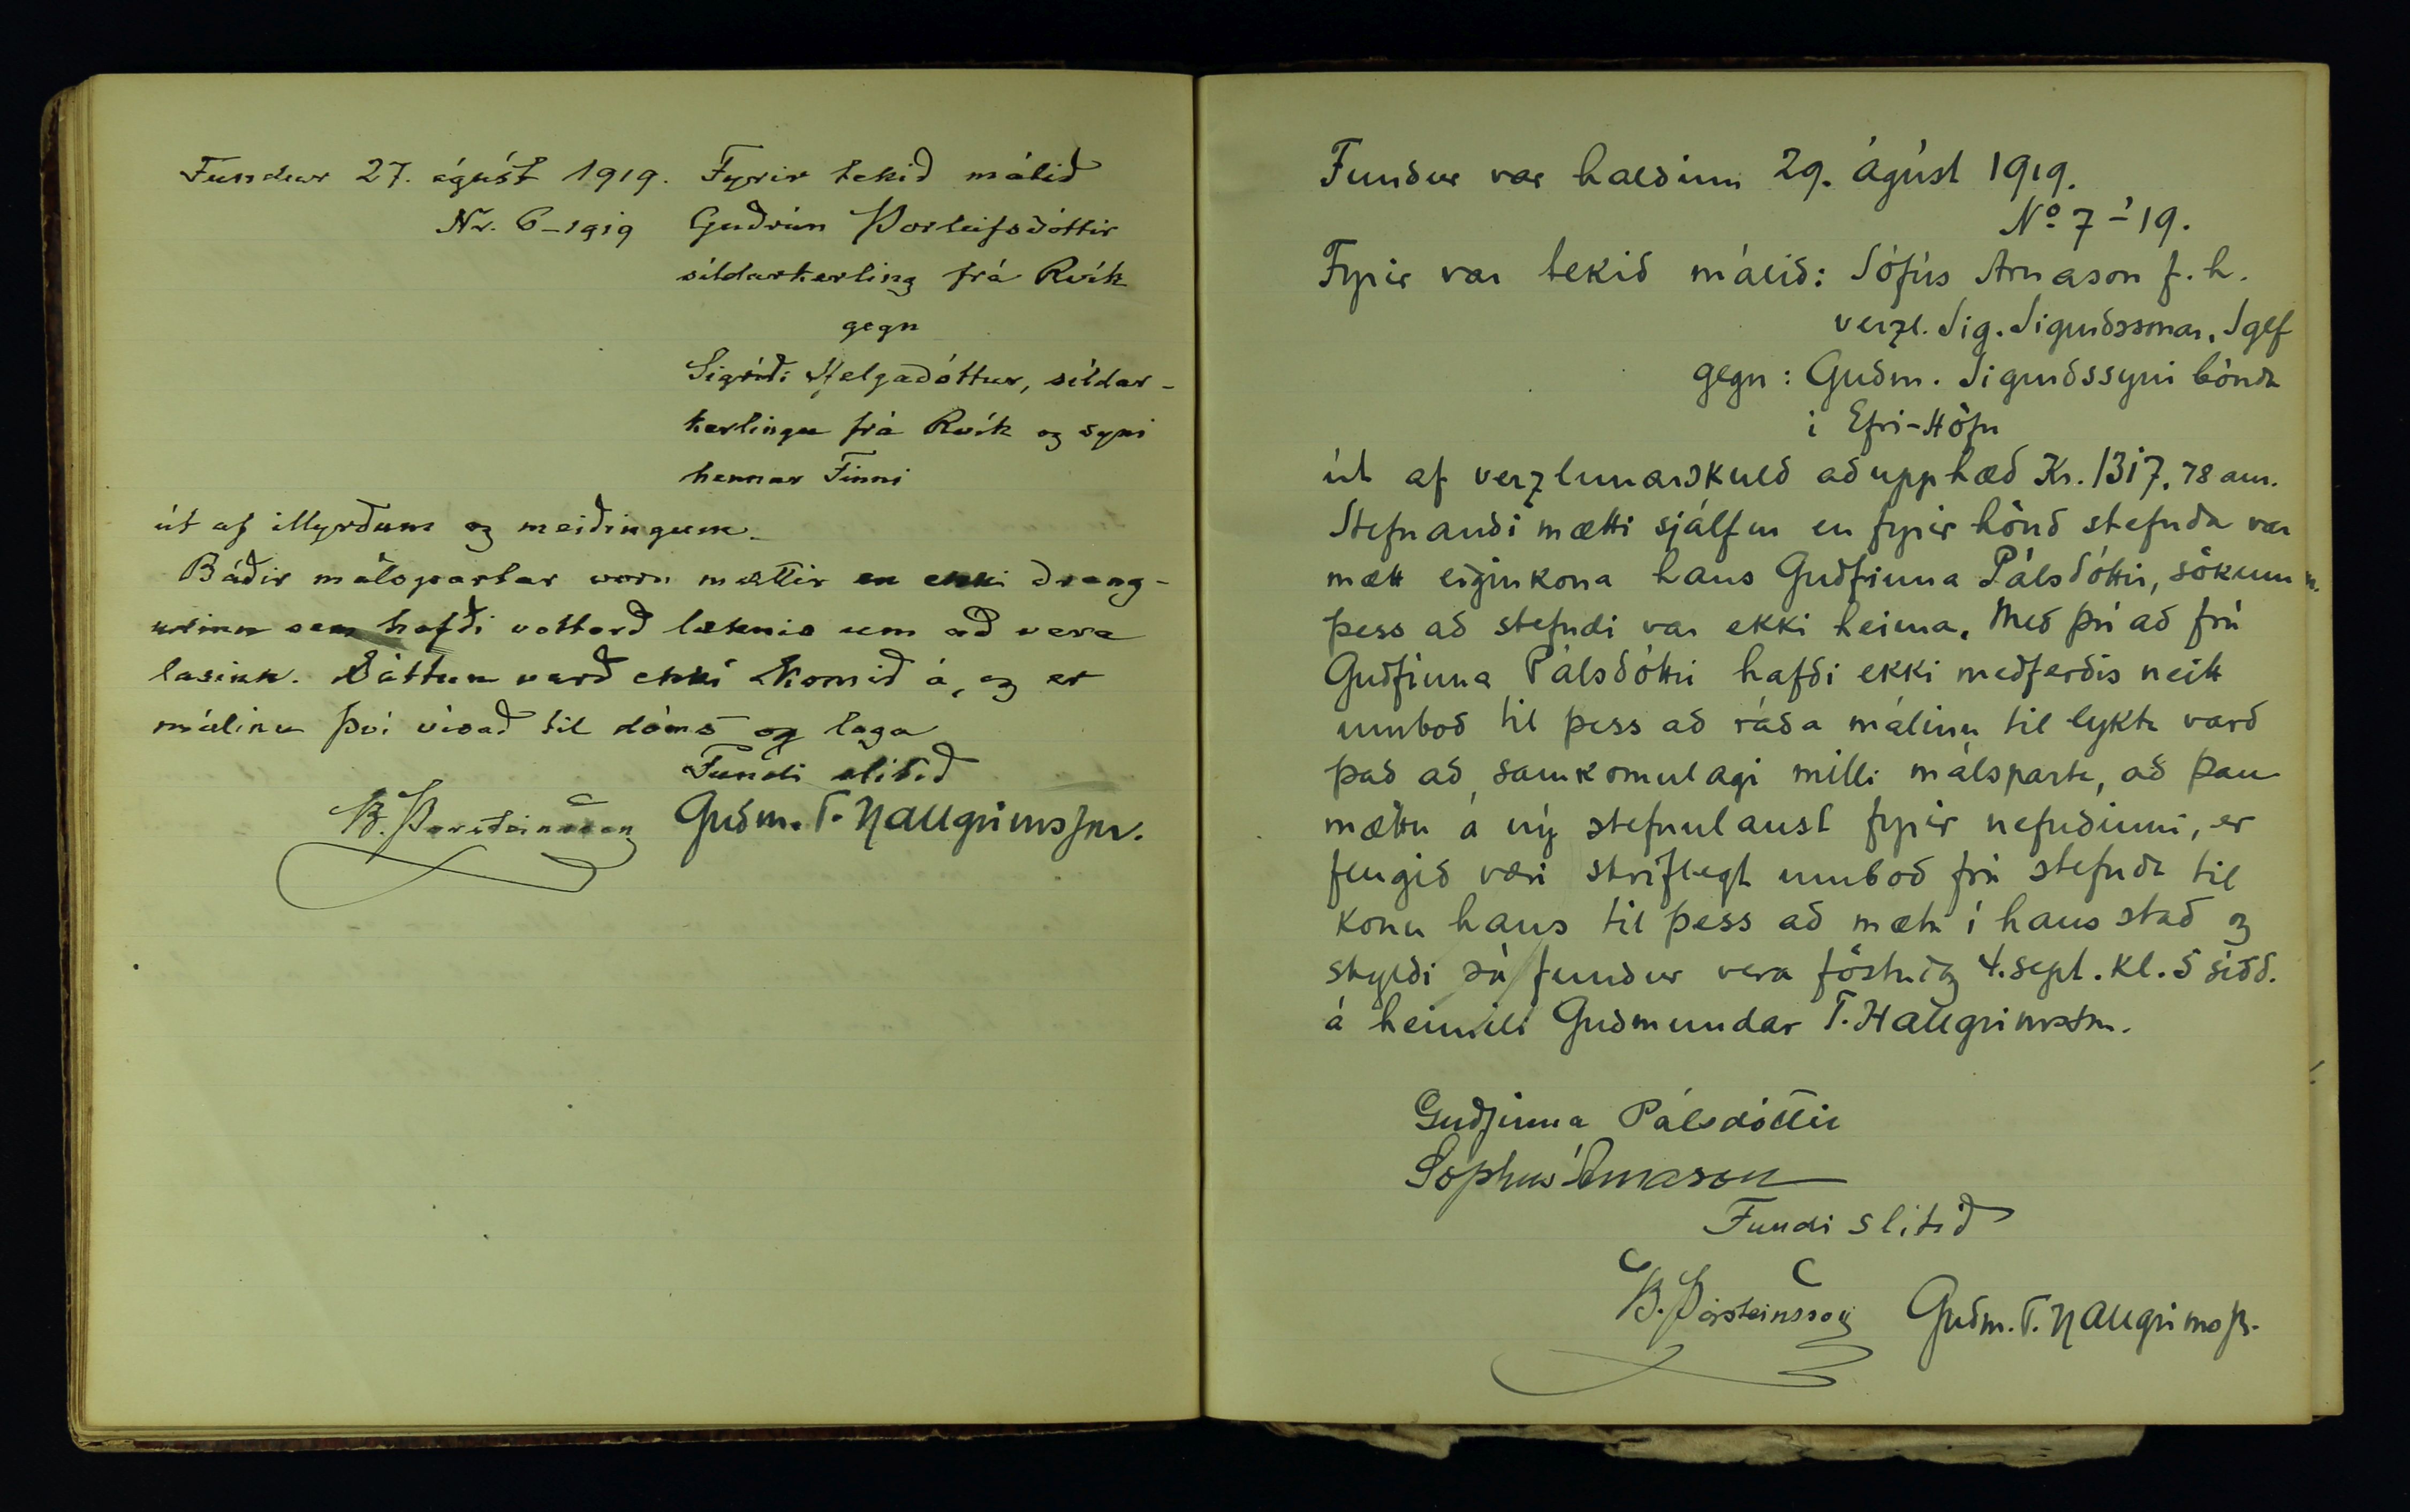 Fundur 27. ágúst 1919. Fyrir tekið málið
Nr. 6-1919 Guðrún Þorleifsdóttir
síldarkerling frá Rvík
gegn
Sigríði Helgadóttur, síldar-
kerlingu frá Rvík og syni
hennar Finni
út af illyrðum og meiðingum.
Báðir málspartar voru mættir en ekki dreng-
urinn sem hafði vottorð læknis um að vera
lasinn. Sáttum varð ekki komið á, og er
málinu því vísað til dóms og laga
Fundi slitið
B. Þorsteinsson Guðm. T. Hallgrímsson.
Fundur var haldinn 29. ágúst 1919.
No 7 - '19.
Fyrir var tekið málið: Sófús Árnason f. h.
verzl. Sig. Sigurðssonar, Sglf
gegn: Guðm. Sigurðssyni bónda
í Efri-Höfn
út af verzlunarskuld að upphæð Kr. 1317,78 aur.
Stefnandi mætti sjálfur en fyrir hönd stefnda var
mætt eiginkona hans Guðfinna Pálsdóttir, sökum
þess að stefndi var ekki heima. Með því að frú
Guðfinna Pálsdóttir hafði ekki meðferðis neitt
umboð til þess að ráða málinu til lykta varð
það að samkomulagi milli málsparta, að þau
mættu á ný stefnulaust fyrir nefndinni, er
fengið væri skriflegt umboð frá stefnda til
konu hans til þess að mæta í hans stað og
skyldi sá fundur vera föstudag 4. sept. kl. 5 síðd.
á heimili Guðmundar T. Hallgrímssonar.
Guðfinna Pálsdóttir
Sophus Árnason
Fundi slitið
B. Þorsteinsson Guðm. T. Hallgrímss.